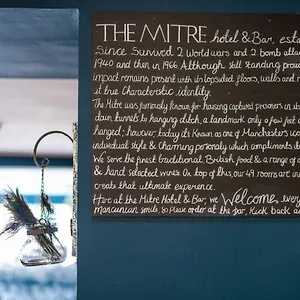 THE MITRE hotel & Bar, esta
Since Survived 2 World wars and 2 bomb attac
1940 and then in 1966. Although still standing proud
impact remains present with its lopsided floors, walls and r
it true Characteristic identity.
The Mitre was famously known for housing captured prisoners in its
drain tunnels to hanging ditch, a landmark only a few feet a
hanged; however today its known as one of Manchesters ico
individual style & Charming personality which compliments its
We serve the finest traditional British food & a range of a
& hand selected wines. On top of this, our 49 rooms are ind
create that ultimate experience.
Here at the Mitre Hotel & Bar; we Welcome every
mancunian smile. So please order at the bar, kick back an